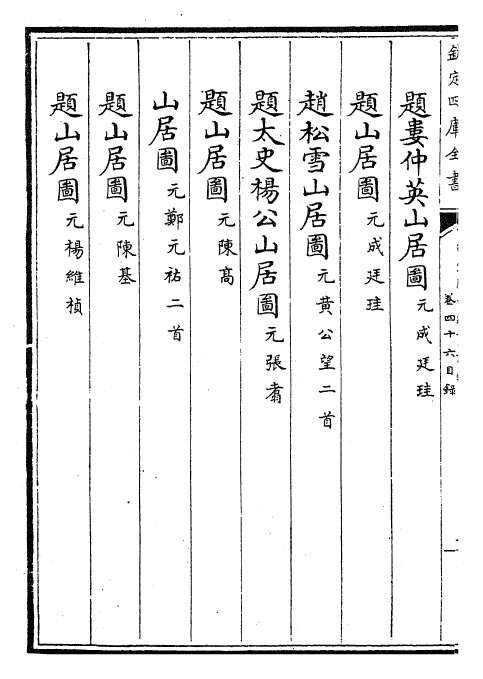 欽定四庫全書
卷四十六目録
題婁仲英山居圖元成廷珪
題山居圖元成廷珪
趙松雪山居圖元黄公望二首
題太史楊公山居圖元張翥
題山居圖元陳高
山居圖元鄭元祐二首
題山居圖元陳基
題山居圖元楊維楨